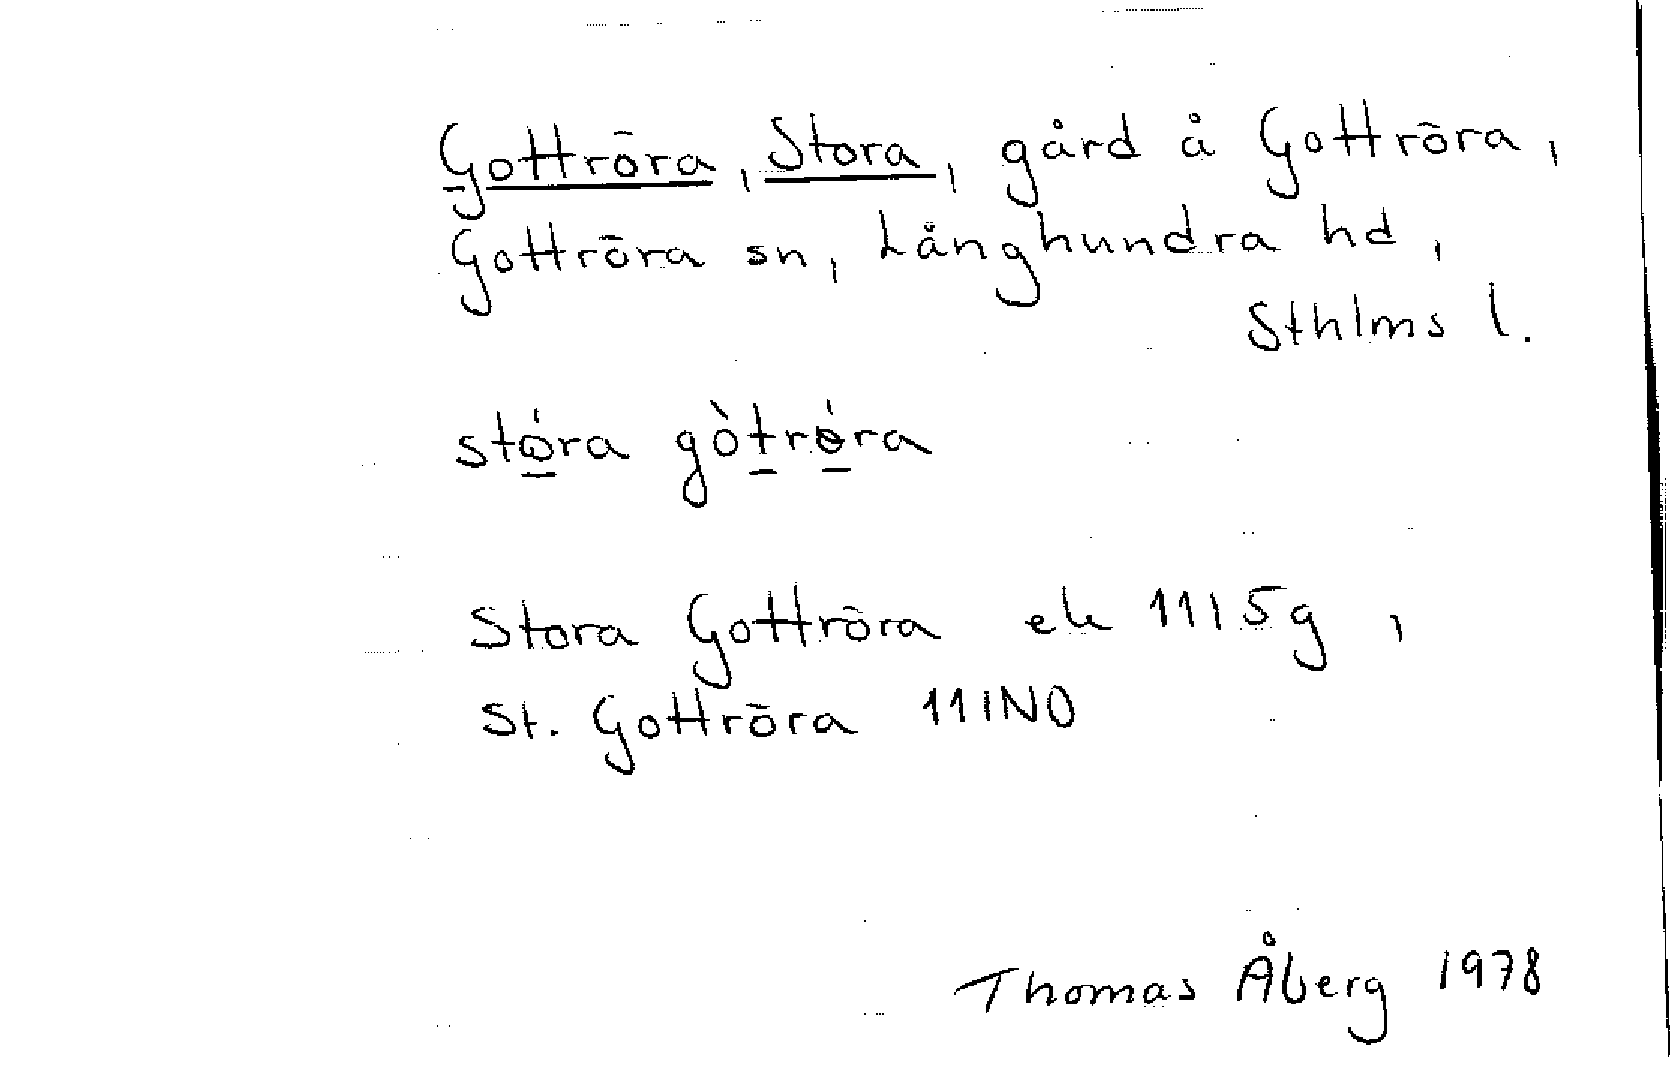 Gottröra, Stora, gård å Gottröra,
Gottröra sn, Långhundra hd,
Sthlms l.
stó̲ra gòt̲rǿ̲ra
Stora Gottröra ek 11I5g,
St. Gottröra 11INO
Thomas Åberg 1978